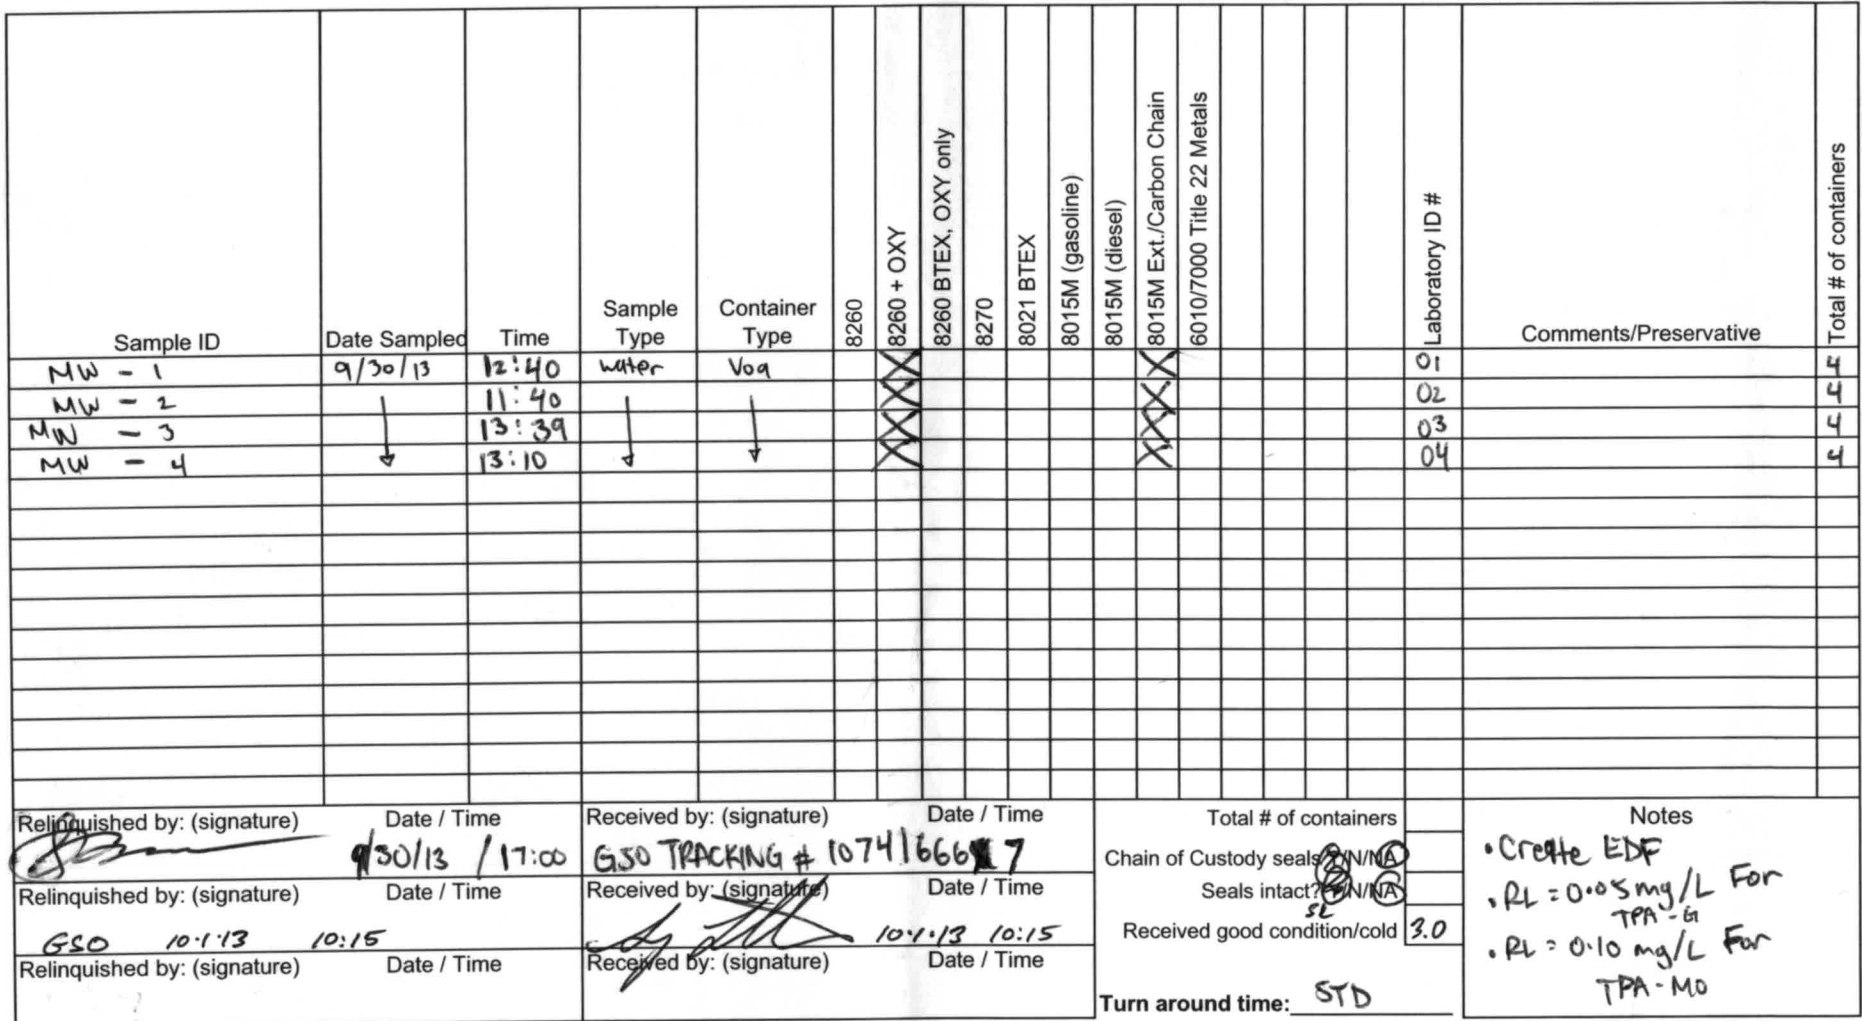 Sample ID Date Sampled Time Sample Type Container Type 8260 8260 + OXY 8260 BTEX, OXY only 8270 8021 BTEX 8015M (gasoline) 8015M (diesel) 8015M Ext./Carbon Chain 6010/7000 Title 22 Metals Laboratory ID # Comments/Preservative Total # of containers
MW - 1 9/30/13 12:40 water Voa X X 01 4
MW - 2 11:40 X X 02 4
MW - 3 13:39 X X 03 4
MW - 4 13:10 X X 04 4
Relinquished by: (signature) Date / Time
9/30/13 / 17:00
Received by: (signature) Date / Time
GSO TRACKING # 10741666 7
Relinquished by: (signature) Date / Time
GSO 10.1.13 10:15
Received by: (signature) Date / Time
10.1.13 10:15
Relinquished by: (signature) Date / Time
Received by: (signature) Date / Time
Total # of containers
Chain of Custody seals Y/N/NA
Seals intact? Y/N/NA
SL
Received good condition/cold 3.0
Turn around time: STD
Notes
• Create EDF
• RL = 0.05 mg/L For
TPA-G
• RL = 0.10 mg/L For
TPA-MO